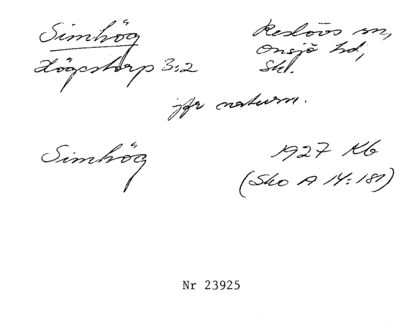 Simhög Reslövs sn,
Högestorp 3:2 Onsjö hd,
Sk.
jfr naturn.
Simhög 1927 Kb
(Sko A 14:181)
Nr 23925